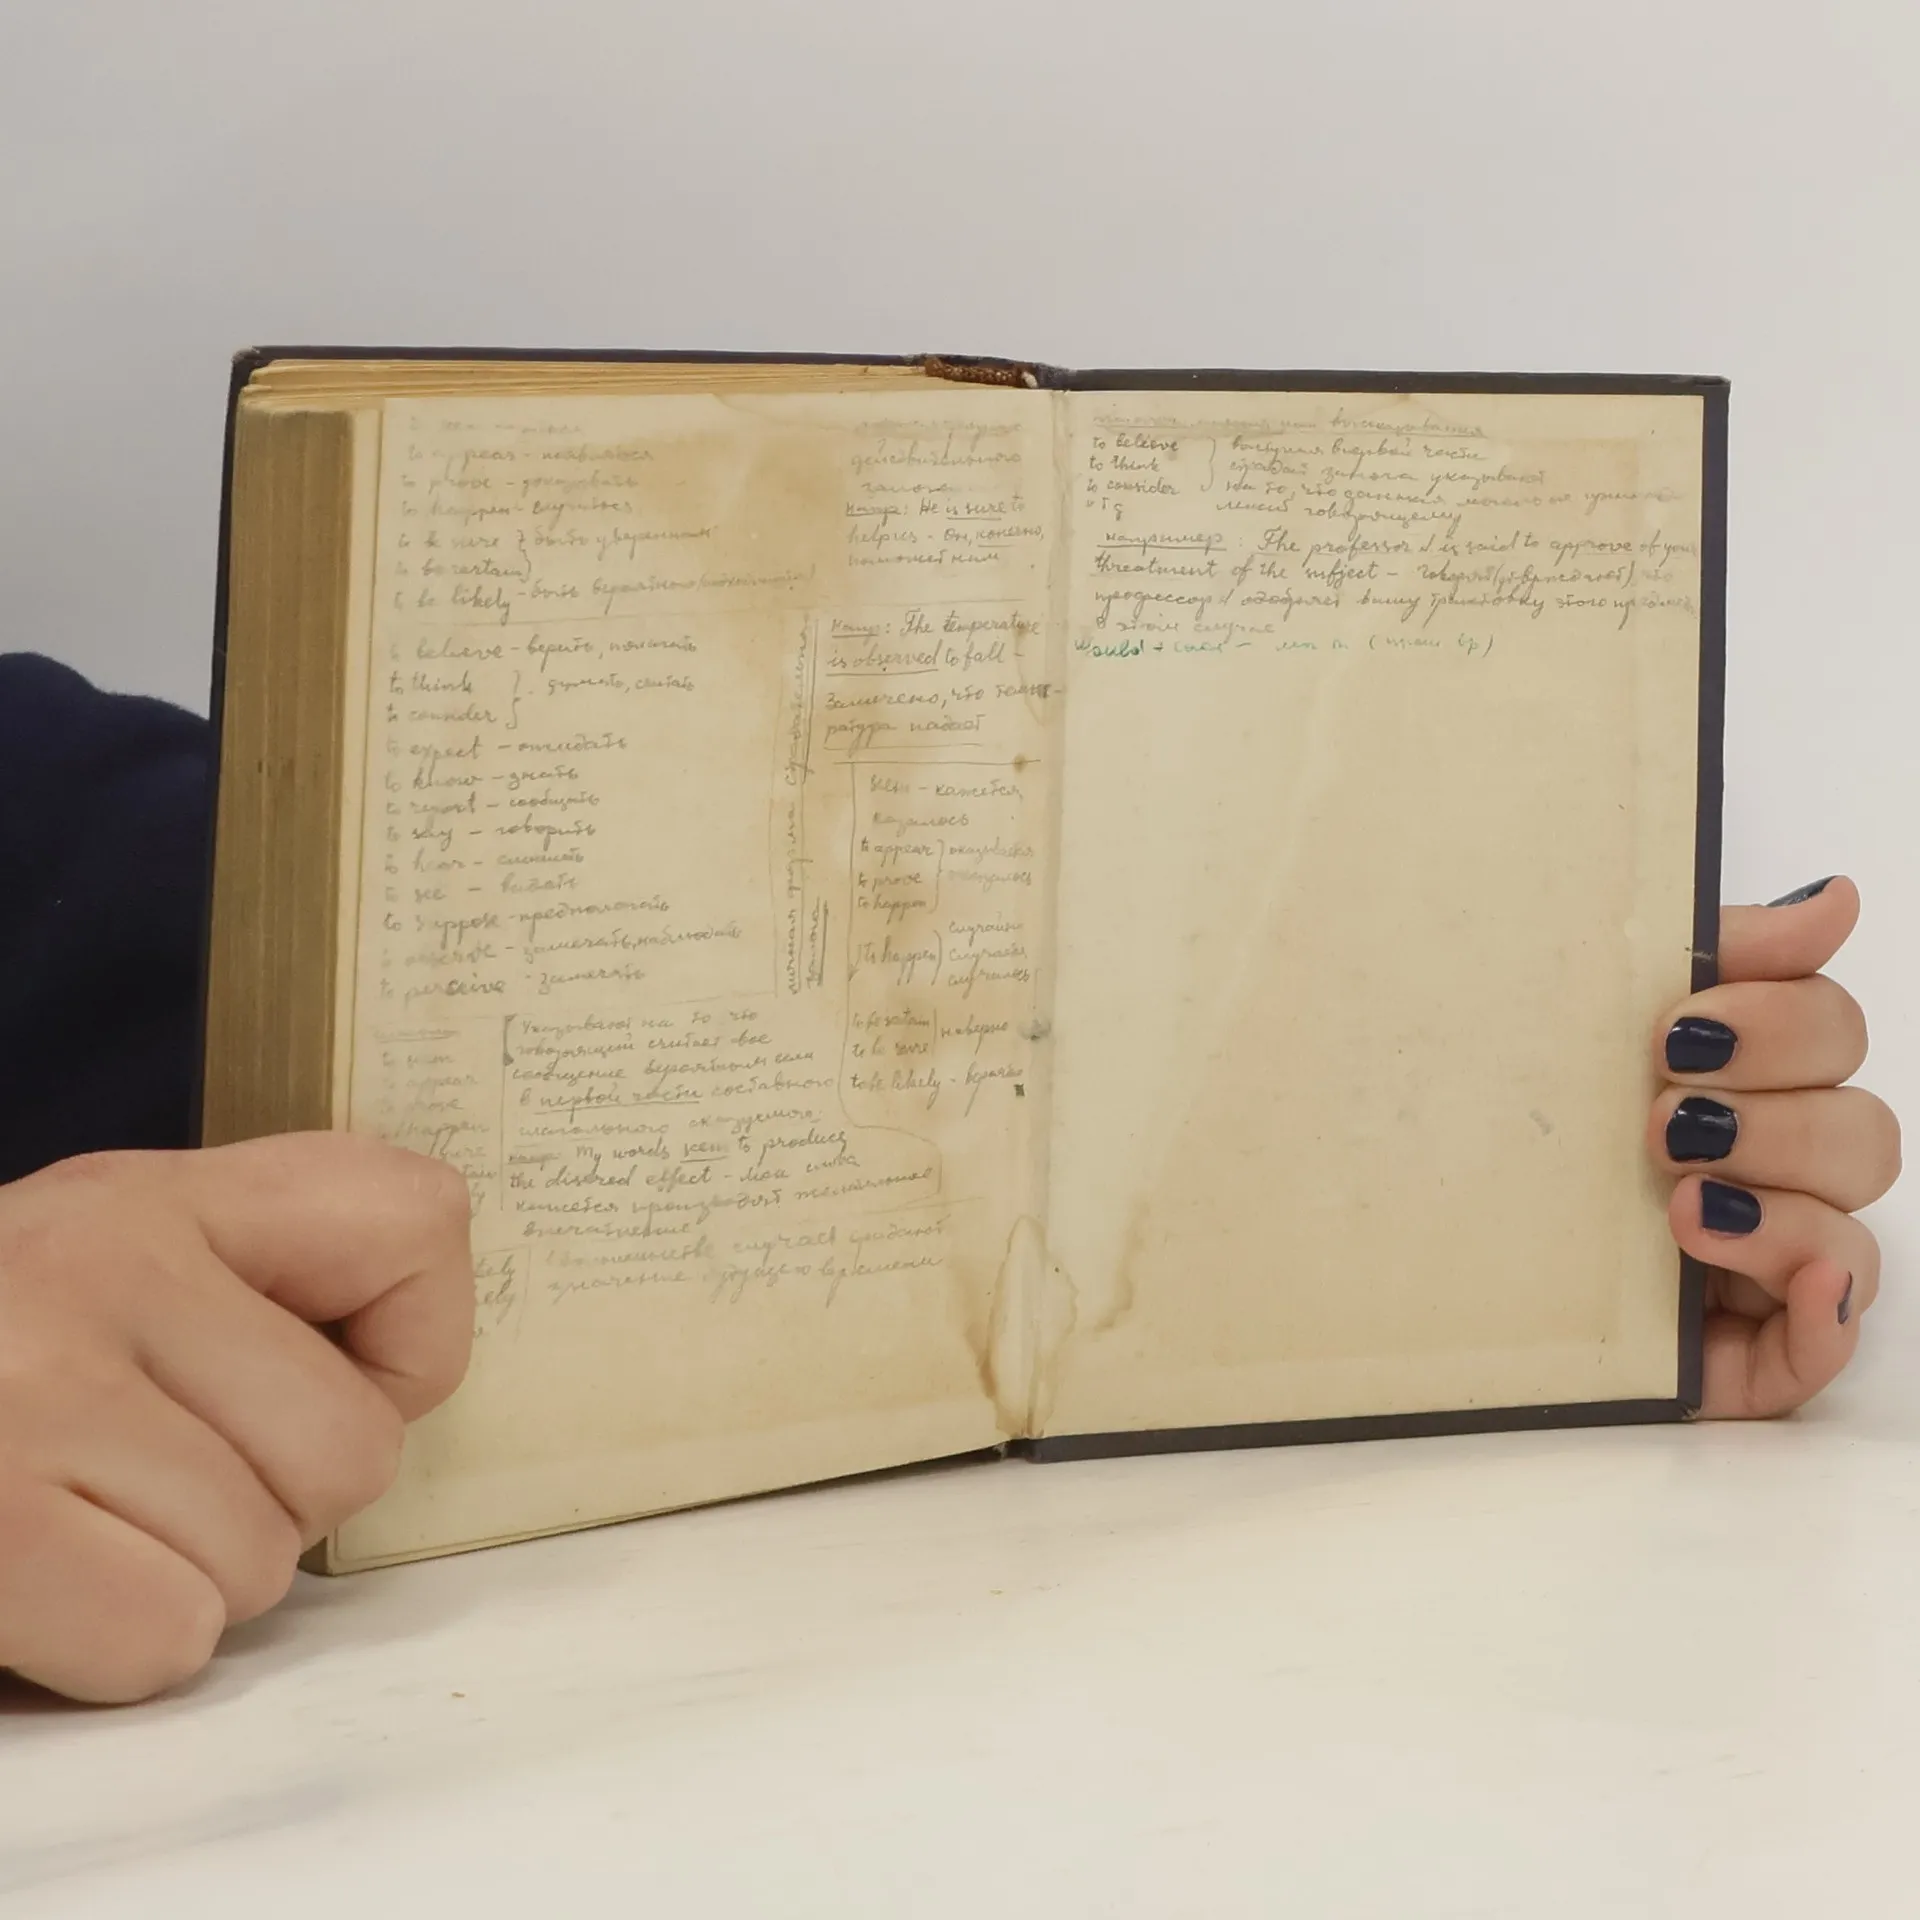 to appear -
to prove - доказывать
to happen - случилось
to be sure } быть уверенным
to be certain }
to be likely - быть вероятно
действительного
залога
Напр: He is sure to
help us - Он, конечно,
поможет нам
to believe - верить, полагать
to think } думать, считать
to consider }
to expect - ожидать
to know - знать
to report - сообщать
to say - говорить
to hear - слышать
to see - видать
to suppose - предполагать
to observe - замечать, наблюдать
to perceive - замечать
личная форма страдательного
залога
Напр: The temperature
is observed to fall -
Замечено, что темпе-
ратура падает
seem - кажется
казалось
to appear } оказывается
to prove } оказалось
to happen }
to happen } случайно
случается
случилось
to be certain } наверно
to be sure
to be likely - вероятно
to seem
to appear
to prove
to happen
Указывают на то что
говорящий считает свое
сообщение вероятным если
в первой части составного
глагольного сказуемого:
Напр: My words seem to produce
the disered effect - мои слова
кажется производят желательное
впечатление
В большинстве случаев придают
значение будущего времени
высказывания
to believe
to think
to consider
в первой части
залога указывают
на то, что данная мысль не
лежит говорящему
например: The professor N is said to approve of your
threatment of the subject - Говорят (утверждают), что
профессор N одобряет вашу трактовку этого предмета
в этом случае
would +